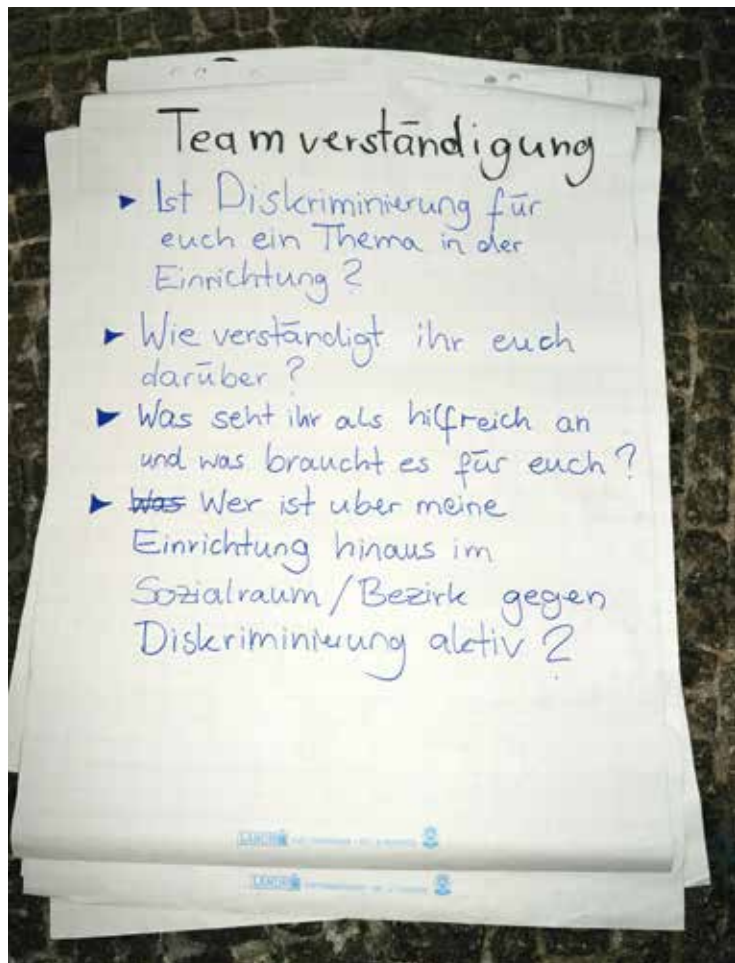 Teamverständigung
▸ Ist Diskriminierung für
euch ein Thema in der
Einrichtung?
▸ Wie verständigt ihr euch
darüber?
▸ Was seht ihr als hilfreich an
und was braucht es für euch?
▸ Was Wer ist uber meine
Einrichtung hinaus im
Sozialraum/Bezirk gegen
Diskriminierung aktiv?